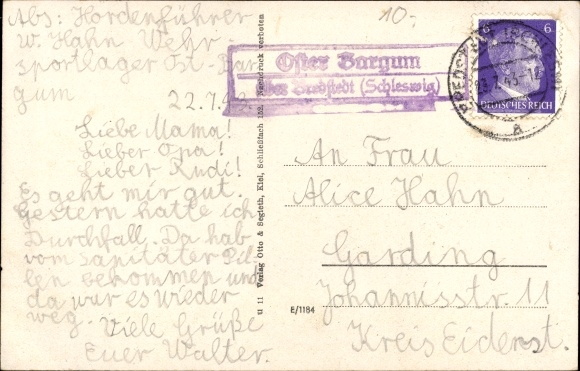 Abs: Hordenführer
W. Hahn Wehr-
sportlager Ost-Bar
gum
22.7.43
Liebe Mama!
Lieber Opa!
Lieber Rudi!
Es geht mir gut.
Gestern hatte ich
Durchfall. Da hab
vom Sanitäter Pil-
len bekommen und
da war es wieder
weg. Viele Grüße
Euer Walter.
u 11 Verlag Otto & Segleth, Kiel, Schließfach 152. Nachdruck verboten
10,-
Oster Bargum
über Bredstedt (Schleswig)
BREDSTEDT
a
6 6
DEUTSCHES REICH
An Frau
Alice Hahn
Garding
Johannisstr. 11
Kreis Eiderst.
E/1184